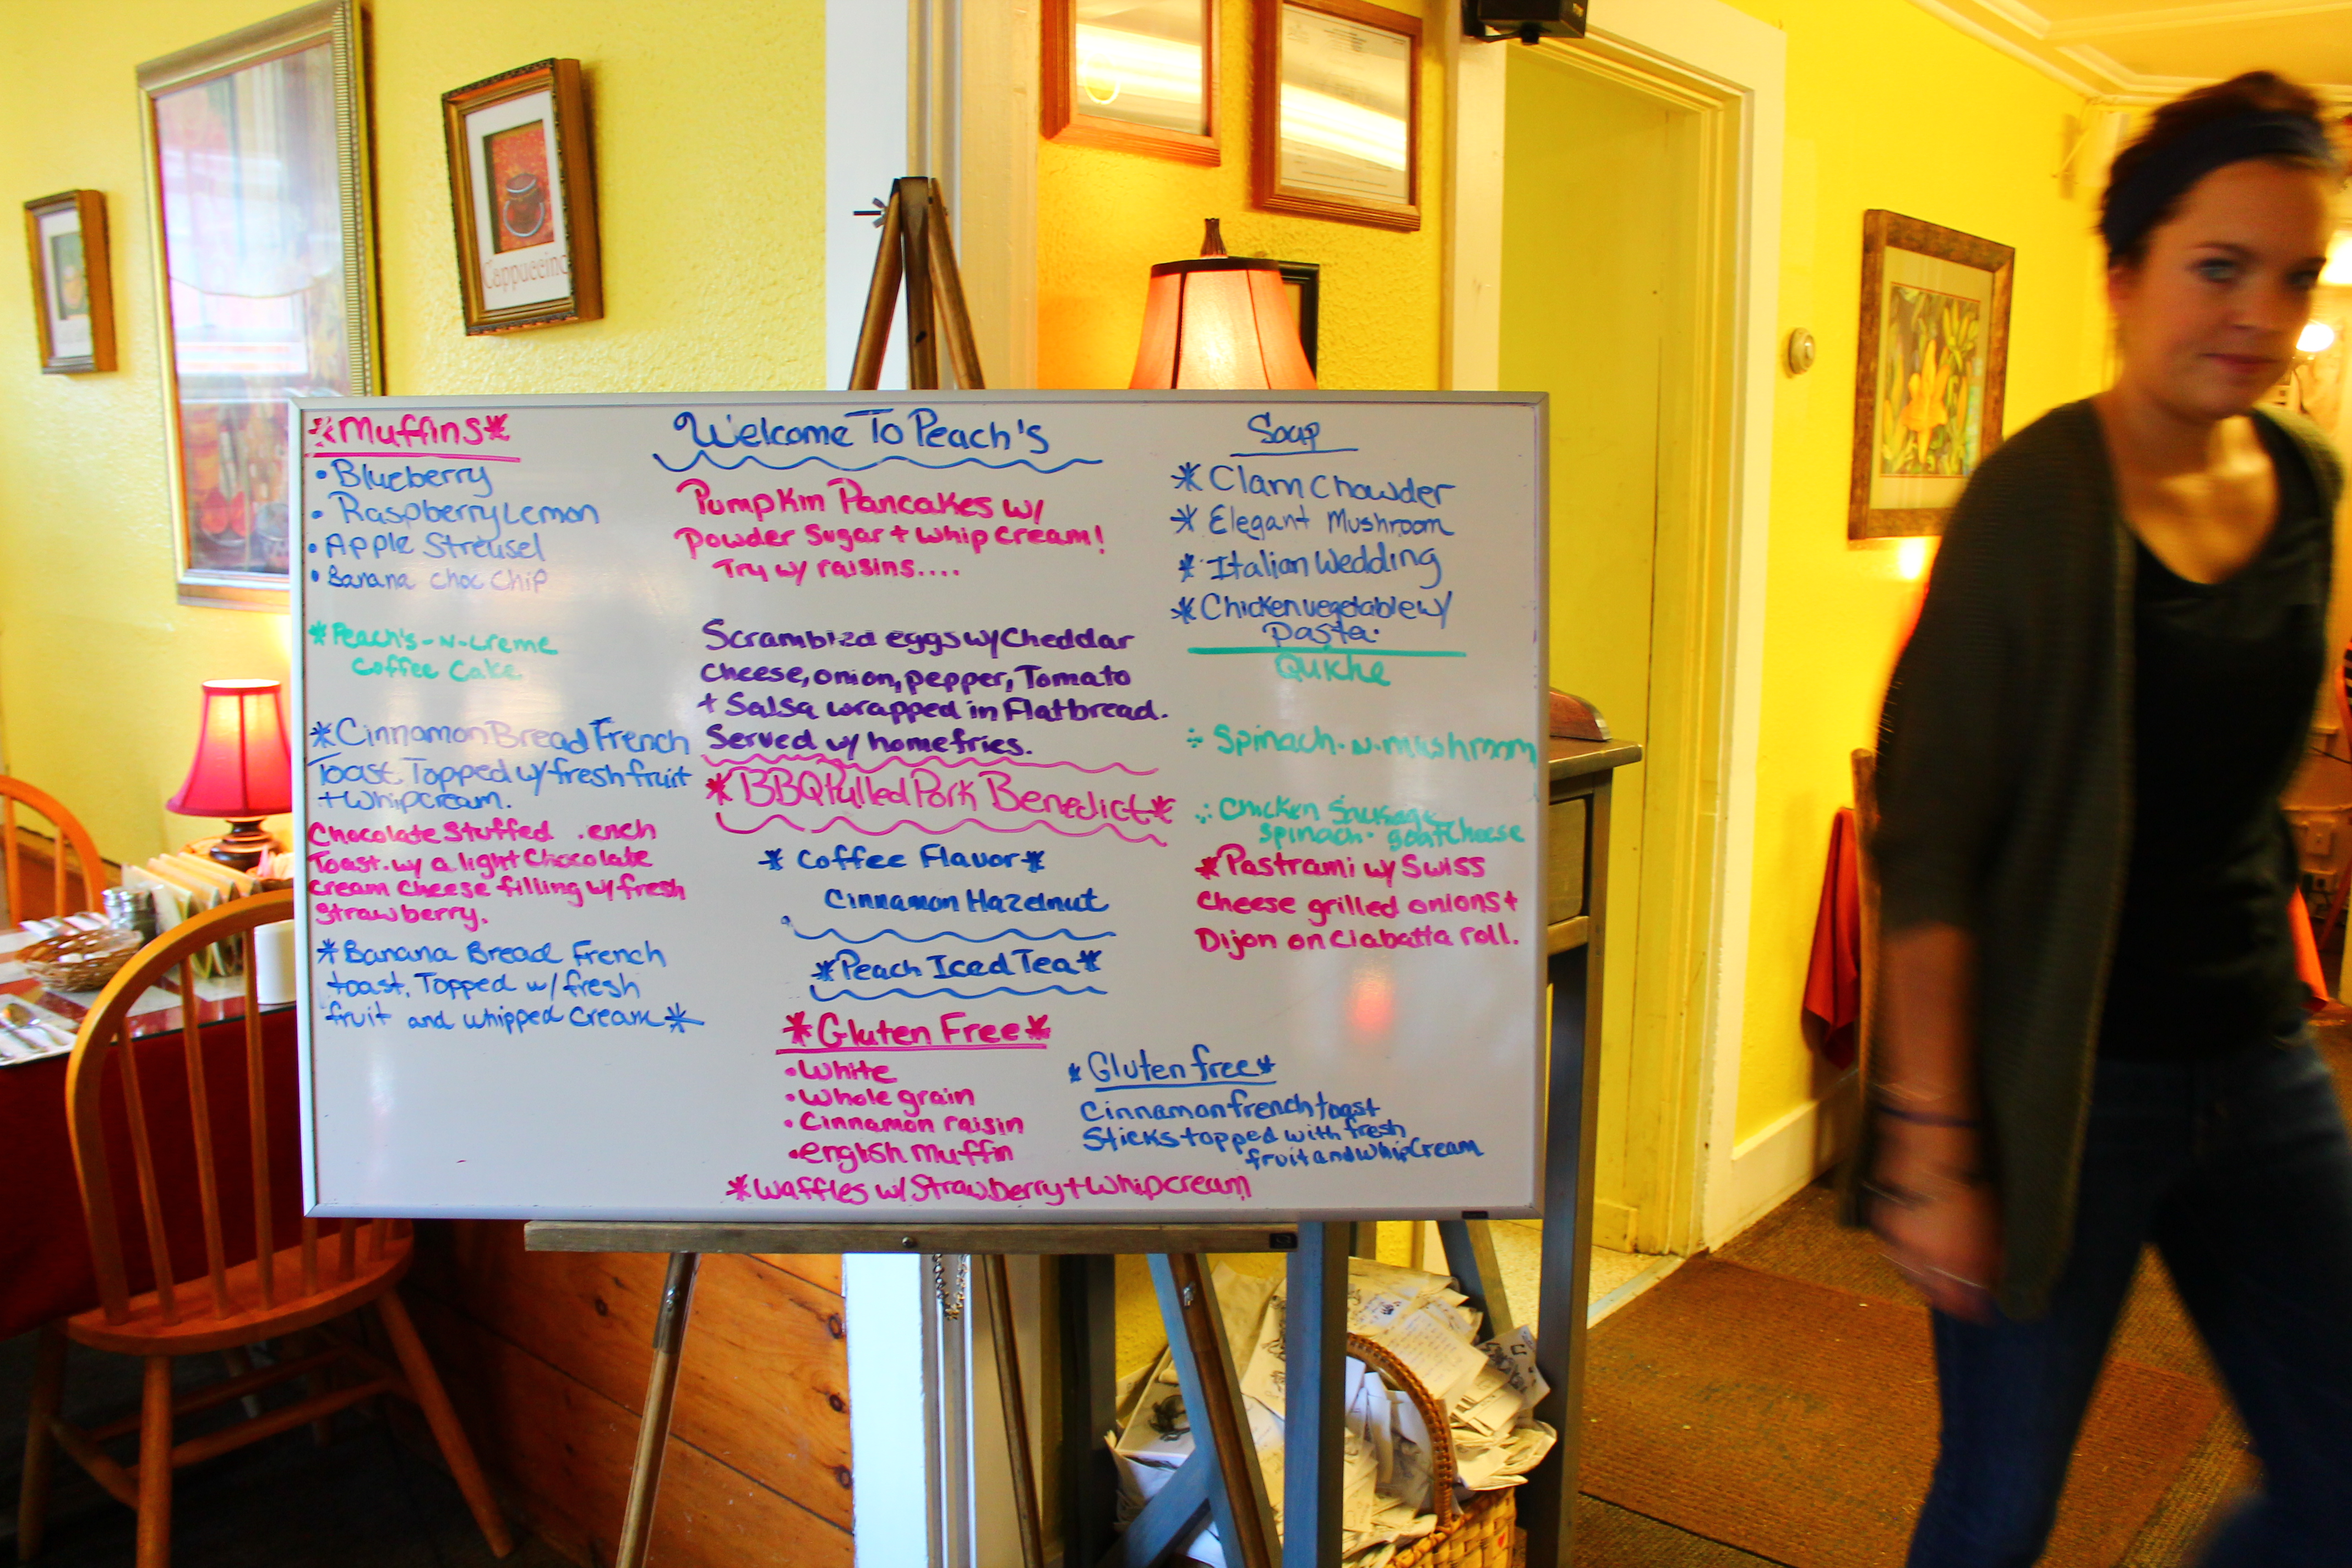 Cappuccino
*Muffins*
• Blueberry
• Raspberry Lemon
• Apple Streusel
• Banana choc chip
*Peach's-N-Creme
Coffee Cake
*Cinnamon Bread French
Toast Topped w/ fresh fruit
+ whip cream.
Chocolate Stuffed .ench
Toast. w/ a light Chocolate
cream cheese filling w/ fresh
Strawberry.
*Banana Bread French
toast. Topped w/ fresh
fruit and whipped Cream*
Welcome To Peach's
Pumpkin Pancakes w/
Powder Sugar + whip cream!
Try w/ raisins....
Scrambled eggs w/ Cheddar
cheese, onion, pepper, Tomato
+ Salsa wrapped in Flatbread.
Served w/ homefries.
*BBQ Pulled Pork Benedict*
*Coffee Flavor*
Cinnamon Hazelnut
*Peach Iced Tea*
*Gluten Free*
• White
• Whole grain
• Cinnamon raisin
• english muffin
*Waffles w/ Strawberry + whip cream
Soup
*Clam Chowder
*Elegant Mushroom
*Italian Wedding
*Chicken vegetable w/
pasta.
Quiche
Spinach-n-mushroom
Chicken Sausage
spinach- goat Cheese
*Pastrami w/ Swiss
Cheese grilled onions +
Dijon on Ciabatta roll.
*Gluten free*
Cinnamon french toast
Sticks topped with fresh
fruit and whip Cream